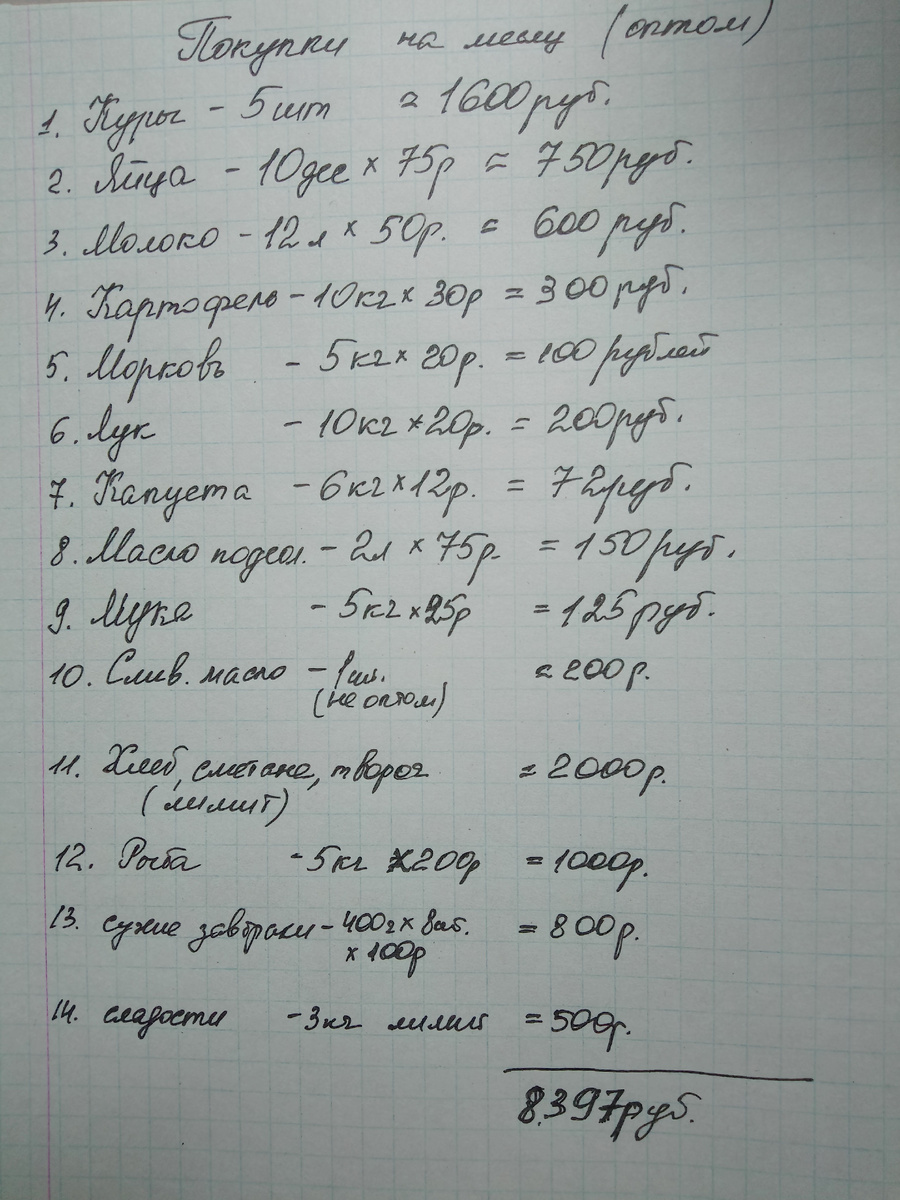 Покупки на месяц (оптом)
1. Куры - 5 шт ≈ 1600 руб.
2. Яйца - 10 дес × 75р = 750 руб.
3. Молоко - 12 л × 50р. = 600 руб.
4. Картофель - 10кг × 30р = 300 руб.
5. Морковь - 5кг × 20р. = 100 рублей
6. Лук - 10кг × 20р. = 200 руб.
7. Капуста - 6кг × 12р. = 72 руб.
8. Масло подсол. - 2л × 75р. = 150 руб.
9. Мука - 5кг × 25р = 125 руб.
10. Слив. масло - 1 ≈ 200р.
(не оптом)
11. Хлеб, сметана, творог = 2000р.
(лимит)
12. - 5кг × 200р = 1000р.
13. сухие завтраки - 400г × 8шт. = 800р.
× 100р
14. сладости - 3кг лимит = 500р.
8.397 руб.